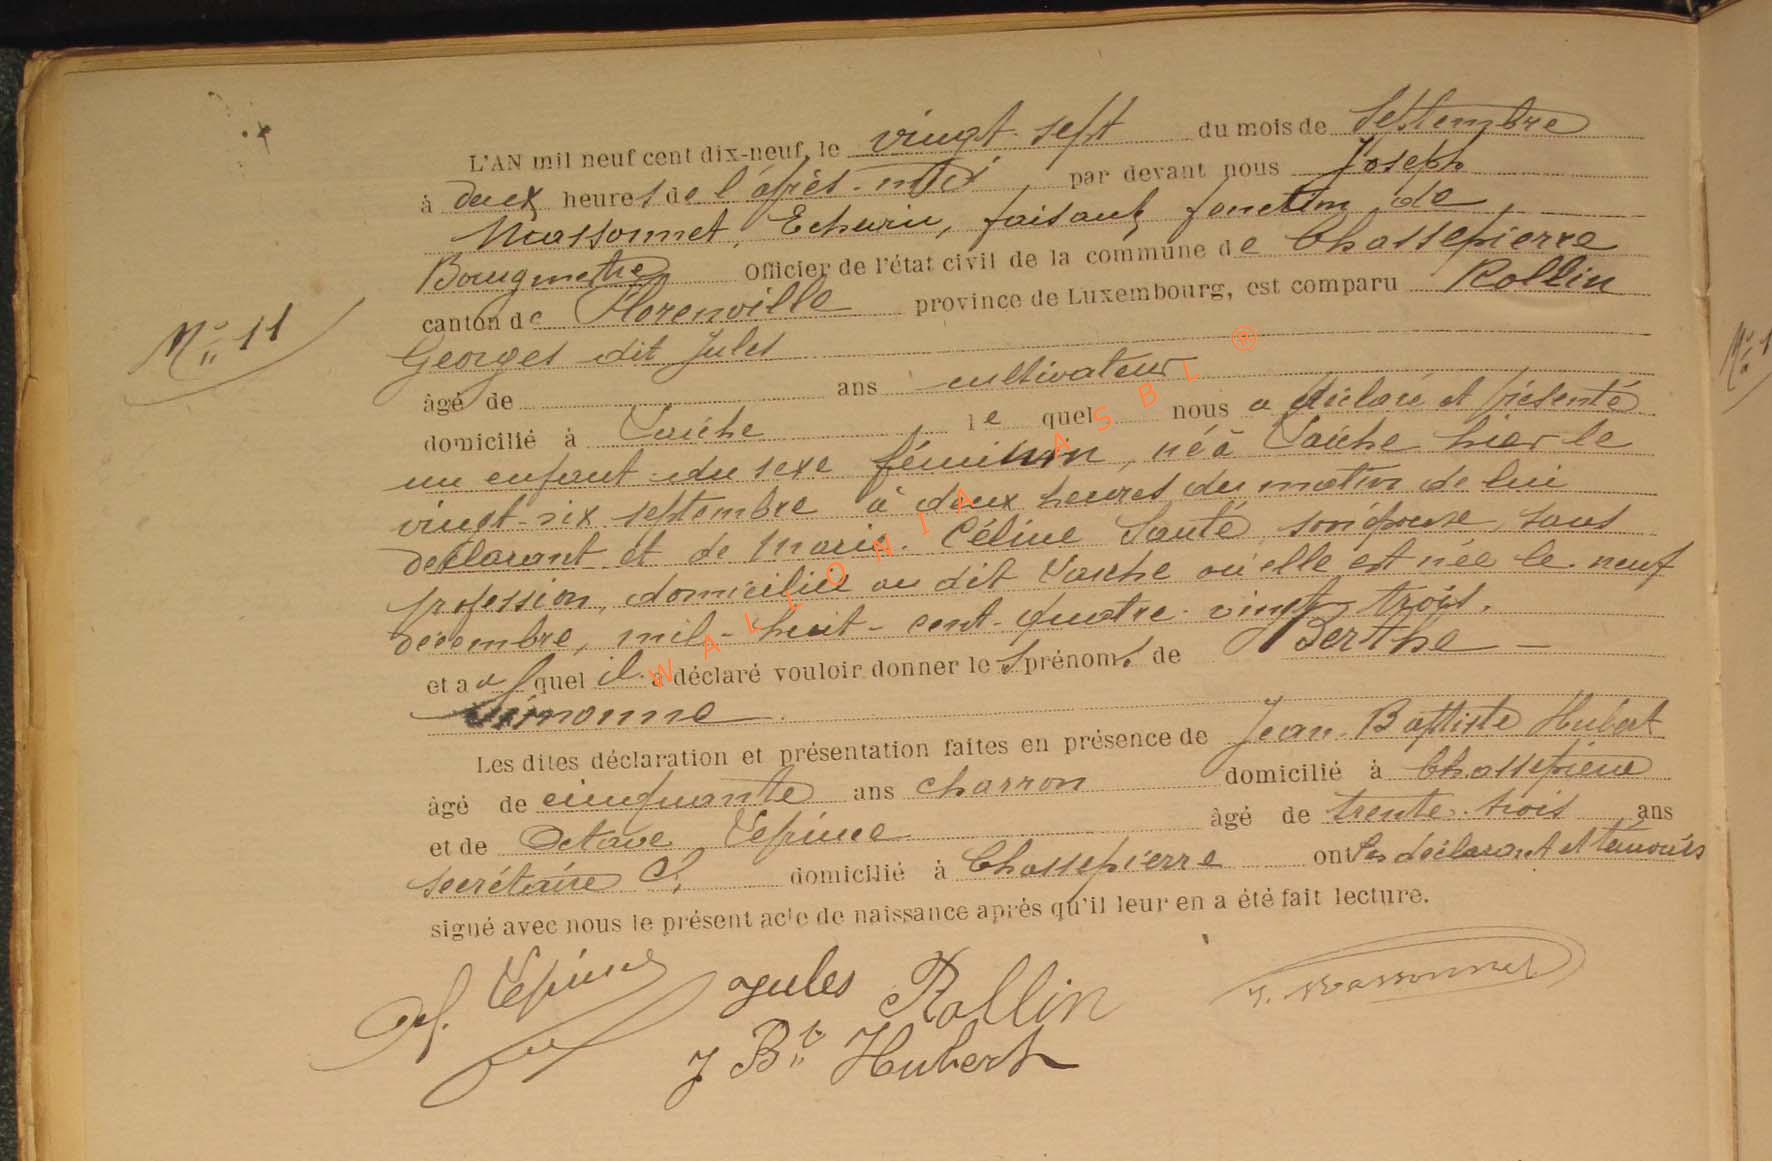 L'AN mil neuf cent dix-neuf, le vingt-sept du mois de Septembre
à deux heures de l'après-midi, par devant nous Joseph
Massonnet, Echevin, faisant fonction de
Bourgmestre Officier de l'état civil de la commune de Chassepierre
canton de Florenville province de Luxembourg, est comparu Rollin
Nº 11
Georges dit Jules
âgé de ans cultivateur
domicilié à Laiche lequel nous a déclaré et présenté
un enfant du sexe féminin, né à Laiche hier le
vingt-six septembre à deux heures du matin de lui
déclarant et de Marie-Céline Santé, son épouse, sans
profession, domiciliée au dit Laiche où elle est née le neuf
décembre, mil-huit-cent-quatre-vingt trois.
et auquel il a déclaré vouloir donner les prénoms de Berthe -
Simonne.
Les dites déclaration et présentation faites en présence de Jean-Baptiste Hubert
âgé de cinquante ans charron domicilié à Chassepierre
et de Octave Lepine âgé de trente-trois ans
secrétaire Cl domicilié à Chassepierre ont les déclarant et témoins
signé avec nous le présent acte de naissance après qu'il leur en a été fait lecture.
Lepine Jules Rollin J. Massonnet
J Bte Hubert
WALLONIA ASBL ®